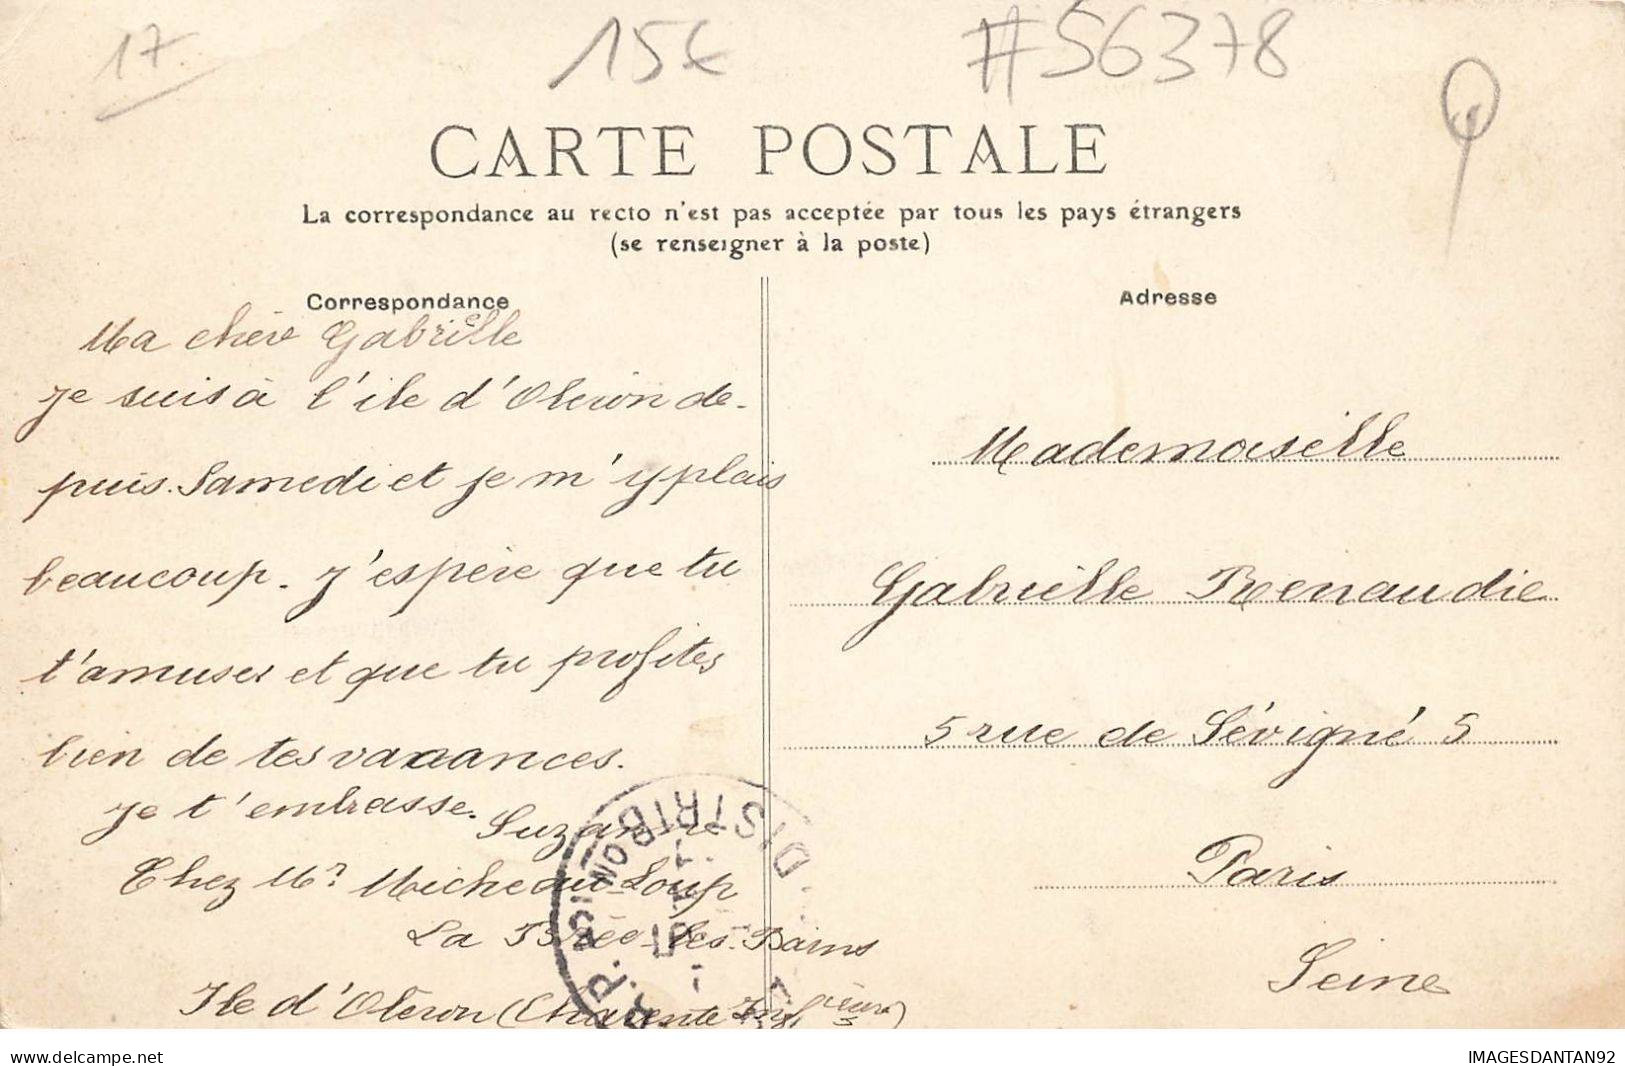 17
15€
#56378
CARTE POSTALE
La correspondance au recto n'est pas acceptée par tous les pays étrangers
(se renseigner à la poste)
Correspondance
Adresse
Ma chère Gabrielle
je suis à l'ile d'Oleron de-
puis Samedi et je m'y plais
beaucoup. J'espère que tu
t'amuses et que tu profites
bien de tes vacances.
Je t'embrasse.
Suzanne
Chez Mr Micheau-Loup
La Brée-les-Bains
Ile d'Oleron (Charente Infrieure)
Mademoiselle
Gabrielle Renaudie
5 rue de Sévigné 5
Paris
Seine
DISTRIB
delcampe.net
IMAGESDANTAN92